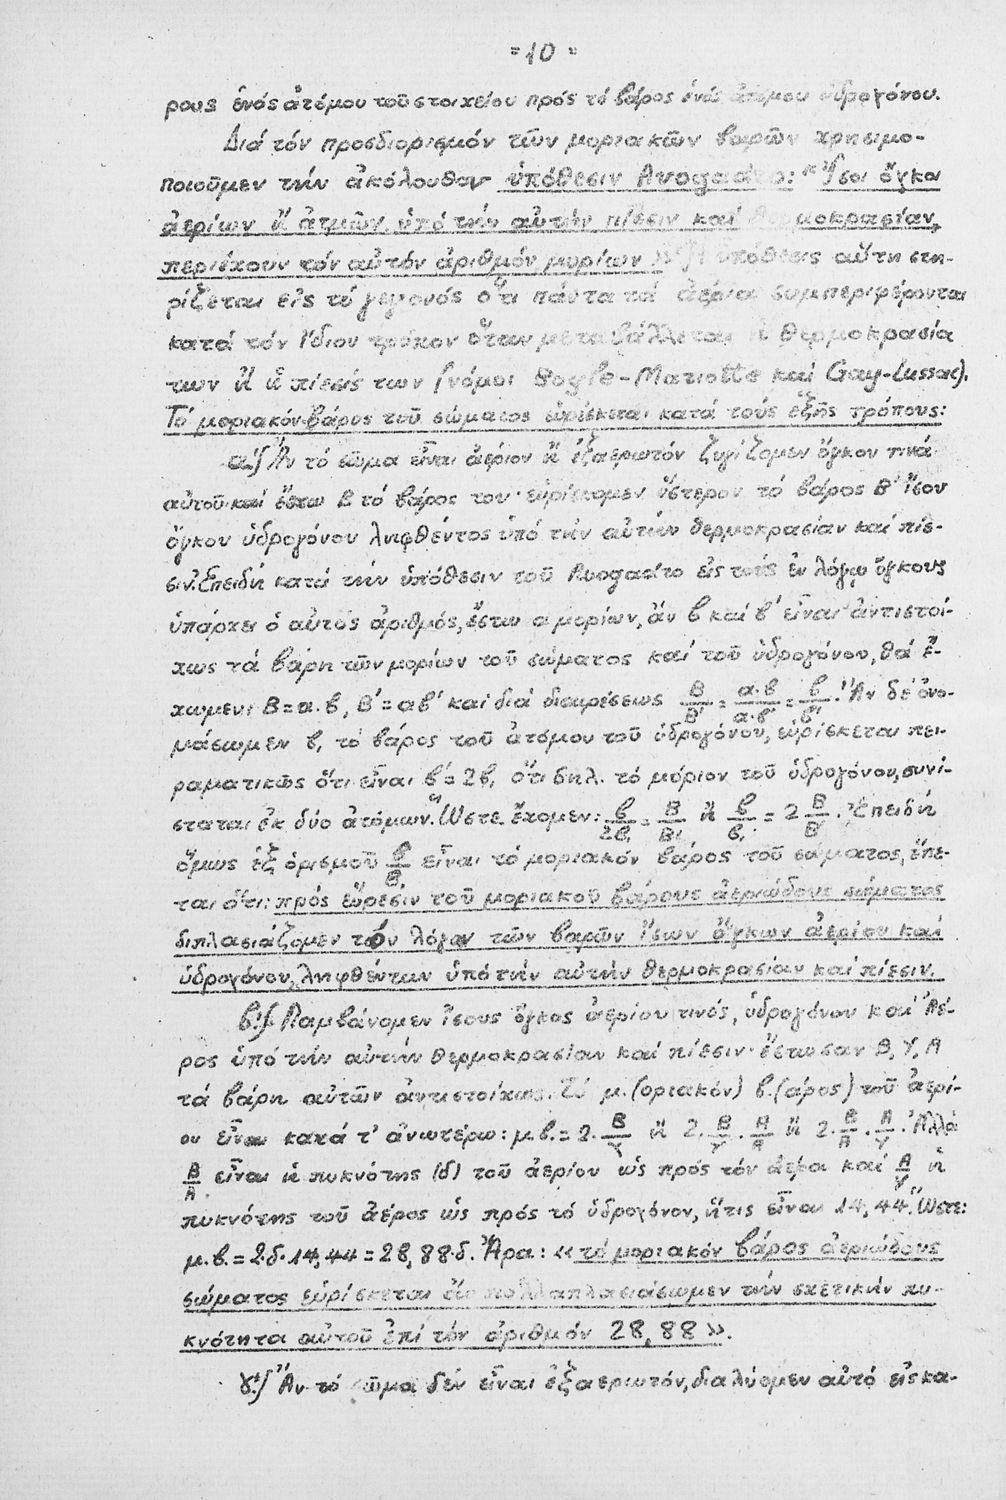 = 10 =
ρους ἑνός ἀτόμου τοῦ στοιχείου πρός τό βάρος ἑνός ἀτόμου ὑδρογόνου.
Διά τόν προσδιορισμόν τῶν μοριακῶν βαρῶν χρησιμο-
ποιοῦμεν τήν ἀκόλουθον ὑπόθεσιν Avogadro: «Ἴσοι ὄγκοι
ἀερίων ἤ ἀτμῶν, ὑπό τήν αὐτήν πίεσιν καί θερμοκρασίαν,
περιέχουν τόν αὐτόν ἀριθμόν μορίων». Ἡ ὑπόθεσις αὕτη στη-
ρίζεται εἰς τό γεγονός ὅτι πάντα τά ἀέρια συμπεριφέρονται
κατά τόν ἴδιον τρόπον ὅταν μεταβάλλεται ἡ θερμοκρασία
των ἤ ἡ πίεσίς των (νόμοι Boyle-Mariotte καί Gay-Lussac).
Τό μοριακόν βάρος τοῦ σώματος εὑρίσκεται κατά τούς ἑξῆς τρόπους:
α∫ Ἄν τό σῶμα εἶναι ἀέριον ἤ ἐξαερωτόν ζυγίζομεν ὄγκον τινά
αὐτοῦ καί ἔστω Β τό βάρος του· εὑρίσκομεν ὕστερον τό βάρος Β' ἴσου
ὄγκου ὑδρογόνου ληφθέντος ὑπό τήν αὐτήν θερμοκρασίαν καί πίε-
σιν. Ἐπειδή κατά τήν ὑπόθεσιν τοῦ Avogadro εἰς τούς ἐν λόγῳ ὄγκους
ὑπάρχει ὁ αὐτός ἀριθμός, ἔστω α μορίων, ἄν β καί β' εἶναι ἀντιστοί-
χως τά βάρη τῶν μορίων τοῦ σώματος καί τοῦ ὑδρογόνου, θά ἔ-
χωμεν: Β = α.β, Β' = αβ' καί διά διαιρέσεως Β/Β' = α.β/α.β' = β/β'. Ἄν δέ ὀνο-
μάσωμεν β, τό βάρος τοῦ ἀτόμου τοῦ ὑδρογόνου, εὑρίσκεται πει-
ραματικῶς ὅτι εἶναι β' = 2β, ὅτι δηλ. τό μόριον τοῦ ὑδρογόνου, συνί-
σταται ἐκ δύο ἀτόμων. Ὥστε ἔχομεν: β/2β, = Β/Β' ἤ β/β, = 2 Β/Β'. Ἐπειδή
ὅμως ἐξ ὁρισμοῦ β/β, εἶναι τό μοριακόν βάρος τοῦ σώματος, ἕπε-
ται ὅτι: πρός εὕρεσιν τοῦ μοριακοῦ βάρους ἀεριώδους σώματος
διπλασιάζομεν τόν λόγον τῶν βαρῶν ἴσων ὄγκων ἀερίου καί
ὑδρογόνου, ληφθέντων ὑπό τήν αὐτήν θερμοκρασίαν καί πίεσιν.
β'∫ Λαμβάνομεν ἴσους ὄγκος ἀερίου τινός, ὑδρογόνου καί Ἀέ-
ρος ὑπό τήν αὐτήν θερμοκρασίαν καί πίεσιν· ἔστωσαν Β, Υ, Α
τά βάρη αὐτῶν ἀντιστοίχως. Τό μ.(οριακόν) β.(άρος) τοῦ ἀερί-
ου εἶναι κατά τ' ἀνωτέρω: μ.β. = 2. Β/Υ ἤ 2. Β/Υ . Α/Α ἤ 2. Β/Α . Α/Υ. Ἀλλά
Β/Α εἶναι ἡ πυκνότης (δ) τοῦ ἀερίου ὡς πρός τόν ἀέρα καί Α/Υ ἡ
πυκνότης τοῦ ἀέρος ὡς πρός τό ὑδρογόνον, ἥτις εἶναι 14,44. Ὥστε:
μ.β. = 2.δ. 14,44 = 28,88.δ. Ἄρα: «τό μοριακόν βάρος ἀεριώδους
σώματος εὑρίσκεται ἐάν πολλαπλασιάσωμεν τήν σχετικήν πυ-
κνότητα αὐτοῦ ἐπί τόν ἀριθμόν 28,88».
γ'∫ Ἄν τό σῶμα δέν εἶναι ἐξαεριωτόν, διαλύομεν αὐτό εἰς κα-